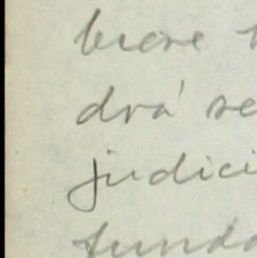 breve
drá se
judici
funda